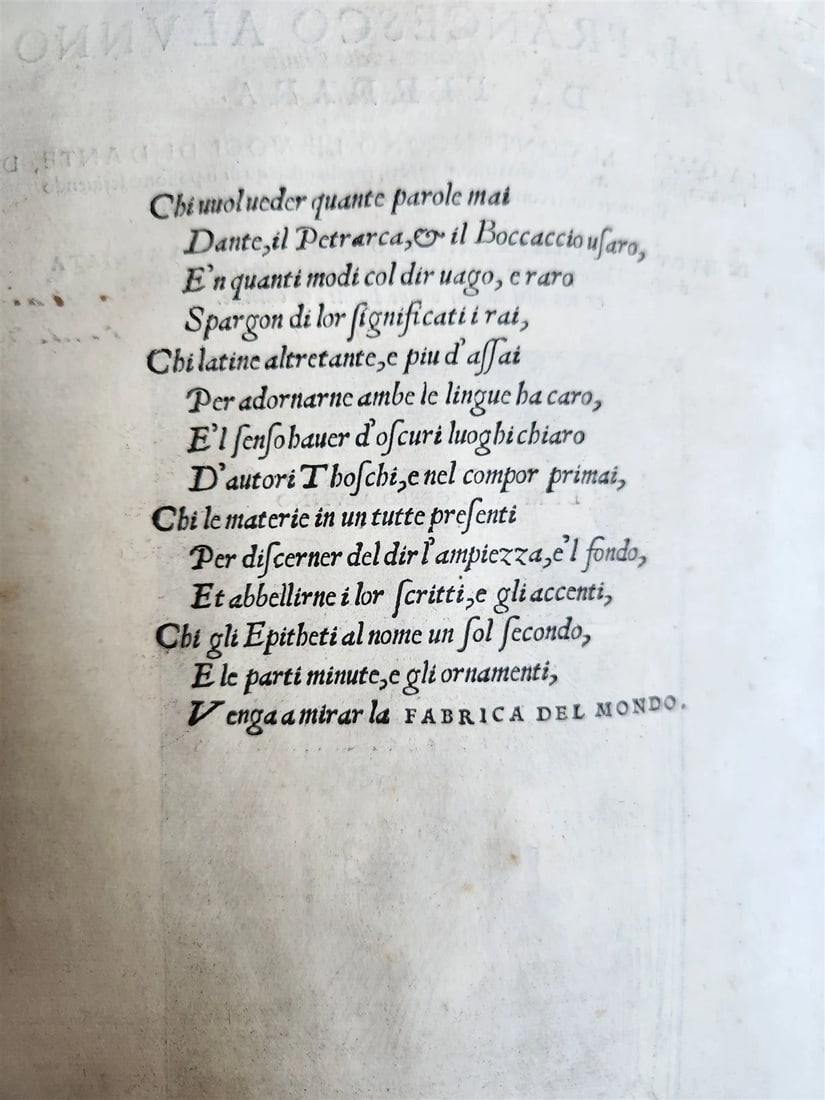 Chi uuol ueder quante parole mai
Dante, il Petrarca, & il Boccaccio uſaro,
E'n quanti modi col dir uago, e raro
Spargon di lor ſignificati i rai,
Chi latine altretante, e piu d'aſſai
Per adornarne ambe le lingue ha caro,
E'l ſenſo hauer d'oſcuri luoghi chiaro
D'autori Thoſchi, e nel compor primai,
Chi le materie in un tutte preſenti
Per diſcerner del dir l'ampiezza, e'l fondo,
Et abbellirne i lor ſcritti, e gli accenti,
Chi gli Epitheti al nome un ſol ſecondo,
E le parti minute, e gli ornamenti,
Venga a mirar la FABRICA DEL MONDO.